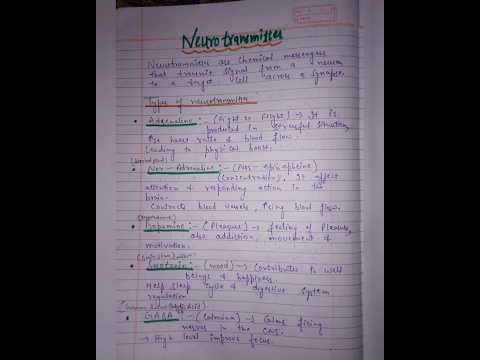 Neurotransmitter
Neurotransmitters are chemical messengers
that transmit signal from a neuron
to a target cell across a synapse.
Types of neurotransmitter
• Adrenaline :- (Fight or Flight) → It is
produced in stressful situation,
heart rate & blood flow,
leading to physical boost.
• Nor-Adrenaline :- (Nor-epinephrine)
(concentration), It affect
attention & responding action in the
brain.
Contracts blood vessels, blood flow.
• Dopamine :- (Pleasure) → feeling of pleasure,
also addiction, movement &
motivation.
:- (mood) → Contributes to well
being & happiness.
Help sleep cycle & digestive system
regulation
• GABA :- (Calming) → Calms firing
nerves in the CNS.
→ High level improve focus.